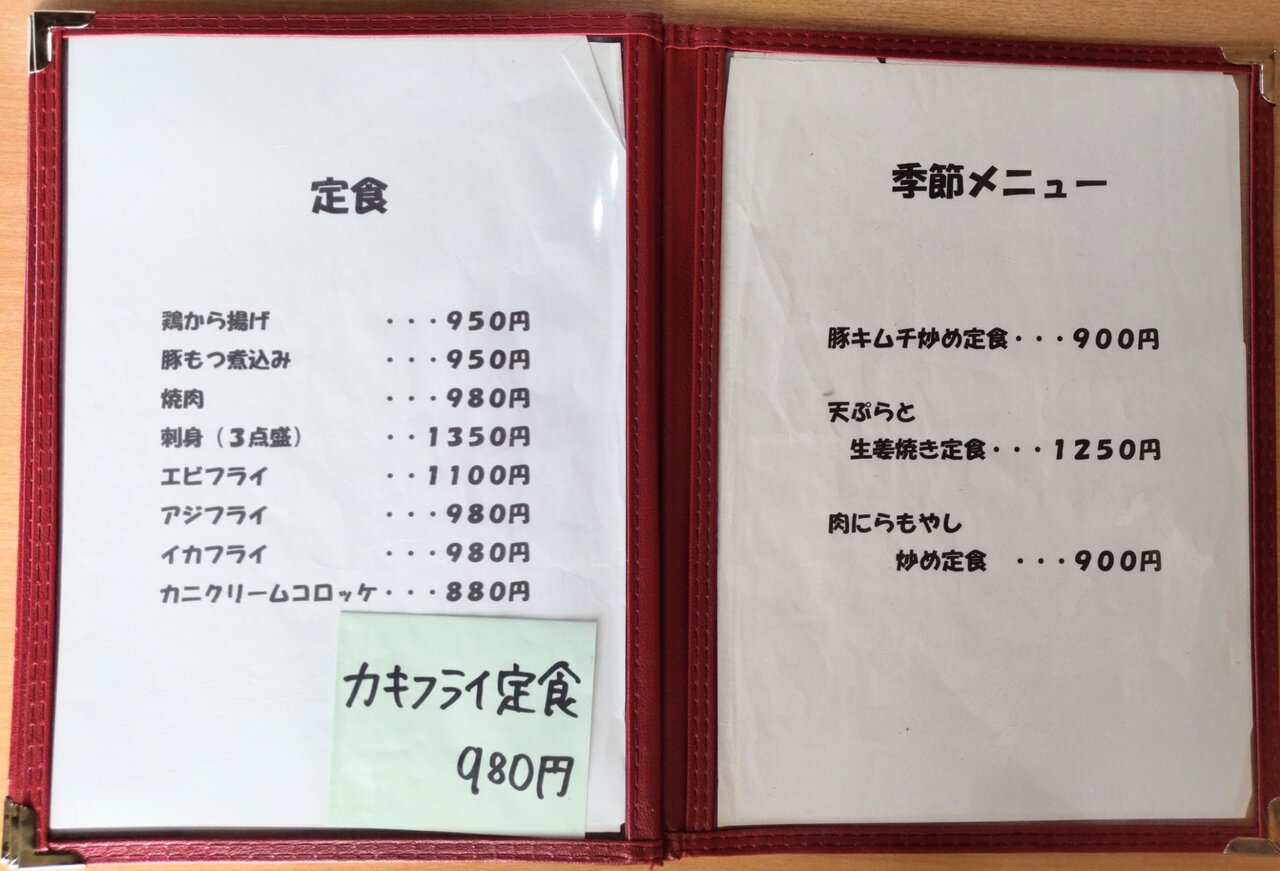 定食
鶏から揚げ ・・・９５０円
豚もつ煮込み ・・・９５０円
焼肉 ・・・９８０円
刺身（３点盛） ・・１３５０円
エビフライ ・・１１００円
アジフライ ・・・９８０円
イカフライ ・・・９８０円
カニクリームコロッケ・・・８８０円
カキフライ定食
980円
季節メニュー
豚キムチ炒め定食・・・９００円
天ぷらと
生姜焼き定食・・・１２５０円
肉にらもやし
炒め定食 ・・・９００円